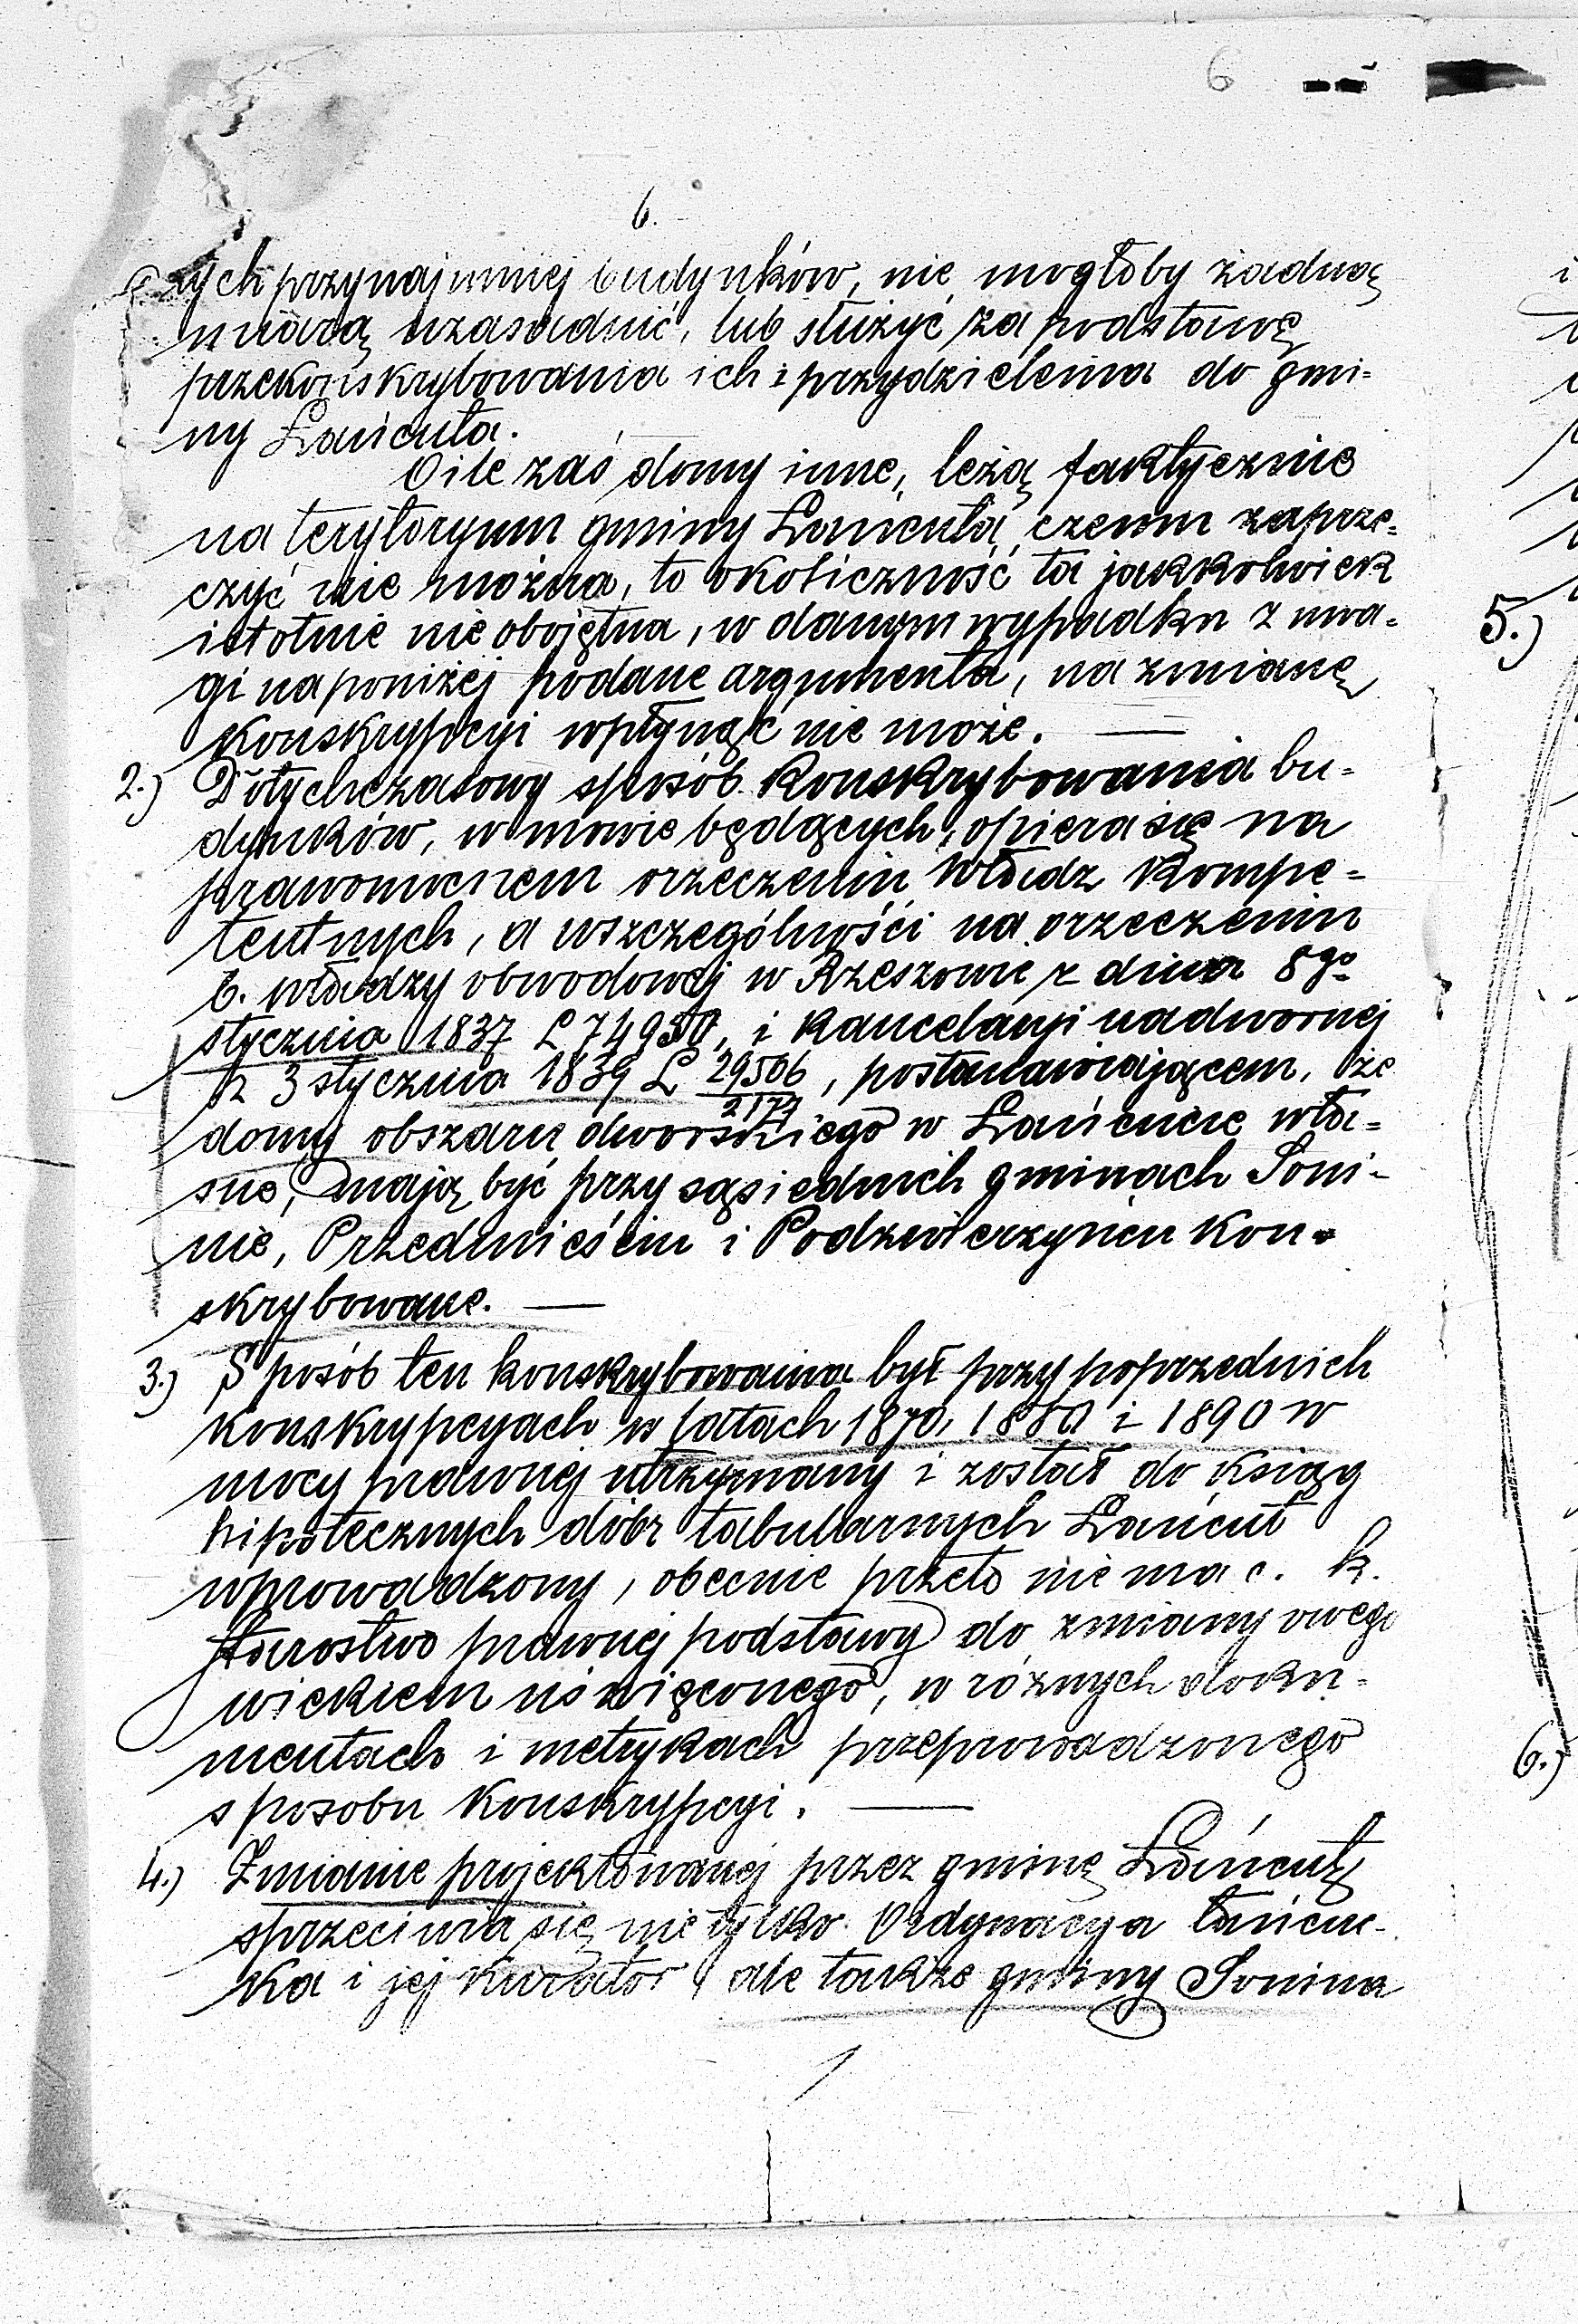 6
6.
tych przynajmniej budynków, nie mogłoby żadną
miarą uzasadnić, lub służyć za podstawę
przekonskrybowania ich i przydzielenia do gmi-
ny Łańcuta.
O ile zaś domy inne, leżą faktycznie
na terytoryum gminy Łańcuta, czemu zaprze-
czyć nie można, to okoliczność ta jakkolwiek
istotnie nie obojętna, w danym wypadku z uwa-
gi na poniżej podane argumenta, na zmianę
konskrypcyi wpłynąć nie może. —
2.) Dotychczasowy sposób konskrybowania bu-
dynków, w mowie będących, opiera się na
prawomocnem orzeczeniu Władz kompe-
tentnych, a wszczególności na orzeczeniu
b. władzy obwodowej w Rzeszowie z dnia 8go
stycznia 1837 L 74950, i Kancelaryi nadwornej
z 3 stycznia 1839 L 29506/2177, postanawiającem, że
domy obszaru dworskiego w Łańcucie wła-
sne, mają być przy sąsiednich gminach Soni-
nie, Przedmieściu i Podzwierzyńcu kon-
skrybowane. —
3.) Sposób ten konskrybowania był przy poprzednich
konskrypcyach w latach 1870, 1880 i 1890 w
mocy prawnej utrzymany i został do ksiąg
hipotecznych dóbr tabularnych Łańcut
wprowadzony, obecnie przeto nie ma c. k.
Starostwo prawnej podstawy do zmiany owego
wiekiem uświęconego, w różnych doku-
mentach i metrykach przeprowadzonego
sposobu konskrypcyi. —
4.) Zmianie projektowanej przez gminę Łańcut,
sprzeciwia się nie tylko Ordynacya łańcuc-
ka i jej kurator, ale także gminy Sonina
5.)
6.)